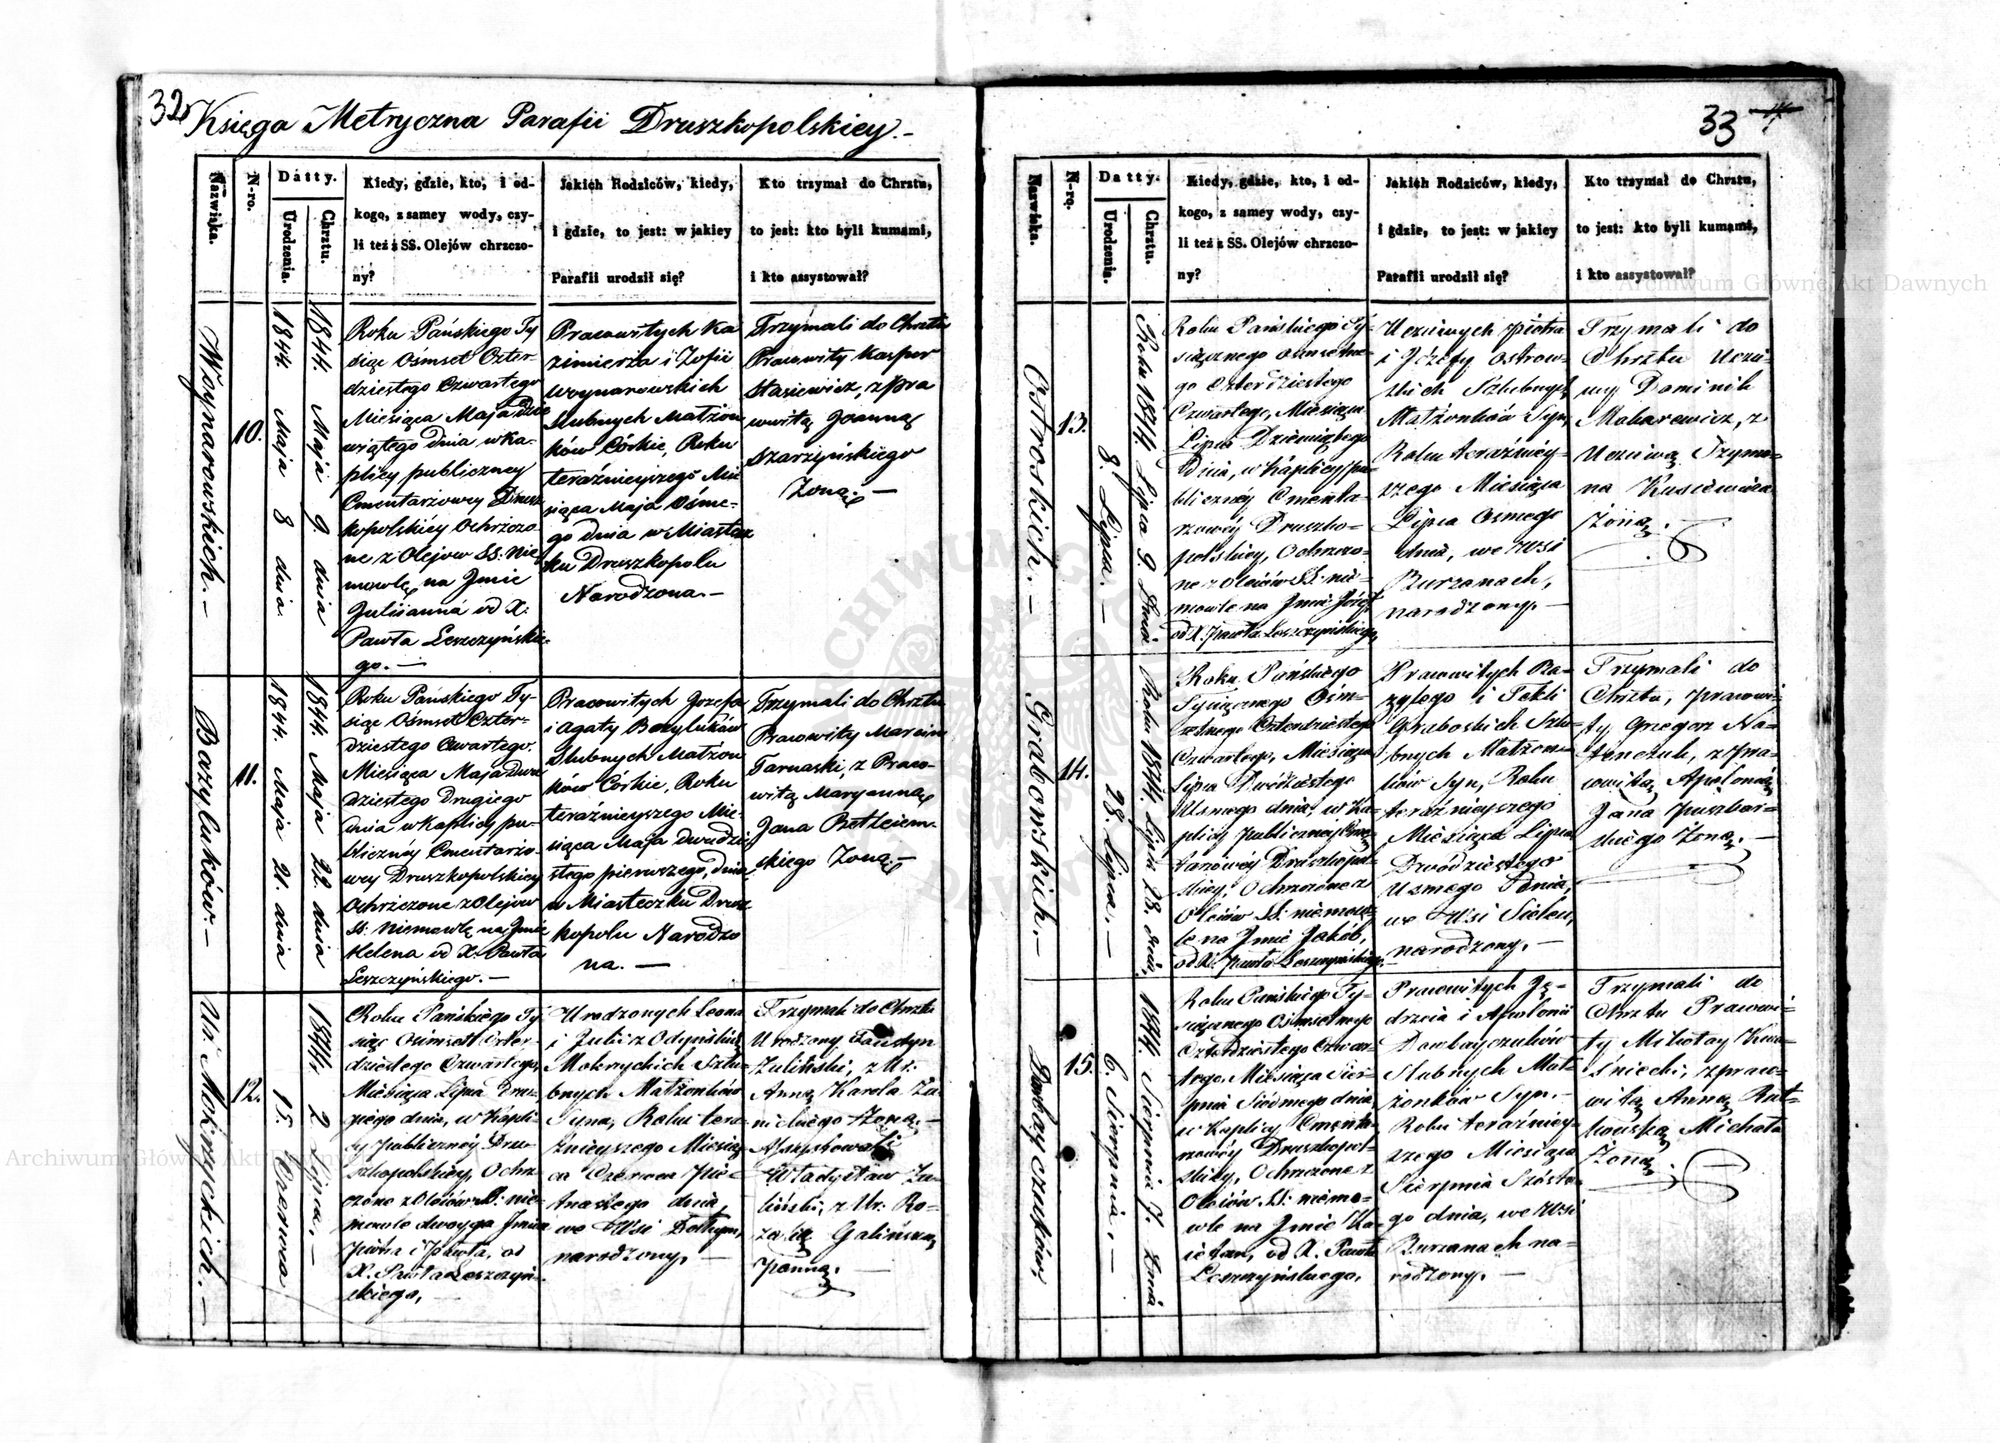 32
Księga Metryczna Parafii Druszkopolskiey.-
Nazwiska.
N-ro.
Datty.
Urodzenia.
Chrztu.
Kiedy, gdzie, kto, i od-
kogo, z samey wody, czy-
li też z SS. Olejów chrzczo-
ny?
Jakich Rodziców, kiedy,
i gdzie, to jest: w jakiey
Parafii urodził się?
Kto trzymał do Chrztu,
to jest: kto byli kumami,
i kto assystował?
Woynarowskich.-
10.
1844. Maja 8 dnia
1844. Maja 9. dnia
Roku Pańskiego Ty-
siąc Ośmset Czter-
dziestego Czwartego
Miesiąca Maja Dzie
wiątego dnia w Ka-
plicy publiczney
Cmentarzowey Drusz
kopolskiéy ochrzczo-
ne z Olejow SS: Nie
mowlę na Jmie
Julijanna od X:
Pawła Leszczyńskie-
go.-
Pracowitych Ka
zimierza i Zofii
Woynarowskich
Slubnych Małżon
ków Córkie, Roku
teraźnieyszego Mie
siąca Maja Ośme-
go dnia w Miastecz
ku Druszkopolu
Narodzona.-
Trzymali do Chrztu
Pracowity Kasper
Stasiewicz, z Pra
cowitą Joanną
Szarzyńskiego
Zoną.-
Bazyluków.-
11.
1844. Maja 21. dnia
1844. Maja 22. dnia
Roku Pańskiego Ty-
siąc Ośmset Czter-
dziestego Czwartego.
Miesiąca Maja Dwu
dziestego Drugiego
dnia w Kaplicy pu-
bliczney Cmentarzo-
wey Druszkopolskiey
Ochrzczone z Olejow
SS: Niemowlę na Jmie
Helena od X. Pawła
Leszczyńskiego.-
Pracowitych Jozefa
i Agaty Bazyluków
Slubnych Małżon
ków Córkie, Roku
teraźnieyszego Mie-
siąca Maja dwudzie
stego pierwszego, dnia
w Miasteczku Drusz
kopolu Narodzo
na.-
Trzymali do Chrztu
Pracowity Marcin
Tarnaski, z Praco-
witą Maryanną
Jana Betleiem-
skiego Zoną-
Ur. Mokrzyckich.-
12.
15. Czerwca.
1844. 2 Lipca.-
Roku Pańskiego Ty
siąc Ośmset Czter,
dziestego Czwartego,
Miesiąca Lipca Dru-
giego dnia, w Kapli-
cy publicznéy Dru-
szkopolskiey, Ochrz-
czone z Oleiów SS: nie-
mowle dwoyga Jmion
Piotra i Pawła, od
X. Pawła Leszczyń-
skiego,
Urodzonych Leona
i Julii z Odyńskich
Mokrzyckich Szlu-
bnych Małżonków
Syna, Roku tera-
źnieyszego Miesią-
ca Czerwca Pię-
tnastego dnia,
we Wsi Dołżym,
narodzony,-
Trzymali do Chrztu
Urodzony Faustyn
Zuliński, z Ur:
Anną Karola Za
Zoną.-
Assystowali
Władysław Zu-
liński, z Ur. Ro-
zalią Galińską
Panną.-
33
Nazwiska.
N-ro.
Datty.
Urodzenia.
Chrztu.
Kiedy, gdzie, kto, i od-
kogo, z samey wody, czy-
li też z SS. Olejów chrzczo-
ny?
Jakich Rodziców, kiedy,
i gdzie, to jest: w jakiey
Parafii urodził się?
Kto trzymał do Chrztu,
to jest: kto byli kumami,
i kto assystował?
Ostroskich.-
13.
8. Lipca.-
Roku 1844 Lipca 9. Dnia
Roku Pańskiego Ty-
siącznego ośmsetne-
go Czterdziestego
Czwartego, Miesiąca
Lipca Dziewiątego
dnia, w Káplicy pu-
blicznéy Cmenta-
rzowéy Druszko-
polskiey, Ochrzczo-
ne z Oleiów SS: nie-
mowle na Jmie Józef
od X. Pawła Leszczyńskiego,
Uczciwych Piotra
i Józefy Ostrow-
skich Szlubnych
Małżonków Syn,
Roku teraźniey-
szego Miesiąca
Lipca Osmego
dnia, we Wsi
Burzanach,
narodzony,-
Trzymali do
Chrztu Uczci-
wy Dominik
Makarewicz, z
Uczciwą Szymo-
na Kusiewicza
Żoną.
Grabowskich.-
14.
28. Lipca.-
Roku 1844. Lipca 28. dnia,
Roku Pańskiego
Tysiącznego Ośm-
setnego Czterdziestego
Czwartego, Miesiąca
Lipca Dwódziestego
Usmego dnia, w Ka-
plicy Publiczney Cmen
tarzowey Druszkopol-
skiey, Ochrzczone z
Oleiów SS: niemow-
le na Jmie Jakób,
od X. Pawła Leszczyńskiego,
Pracowitych Ba-
zylego i Tekli
Graboskich Szlu-
bnych Małżon-
ków Syn, Roku
teraźnieyszego
Miesiąca Lipca
Dwódziestego
Usmego Dnia,
we Wsi Sielcu,
narodzony,-
Trzymali do
Chrztu, Pracowi-
ty Grzegorz Na-
z Pra-
cowitą Apolonią
Jana Puzbar-
skiego Żoną.-
Dowbayczuków,
15.
6. Sierpnia.-
1844. Sierpnia 7. Dnia
Roku Pańskiego Ty-
siącznego Ośmsetnego
Czterdziestego Czwar-
tego, Miesiąca Sier-
pnia Siódmego dnia,
w Kaplicy Cmenta-
rzowéy Druszkopol-
skiéy, Ochrzczone z
Oleiów SS: niemo-
wle na Jmie Ka-
ietan, od X. Pawła
Leszczyńskiego,
Pracowitych Ję-
drzeia i Apolonii
Dowbayczuków
Slubnych Mał-
żonków Syn.-
Roku teraźniey-
szego Miesiąca
Sierpnia Szóste-
go dnia, we Wsi
Burzanach na-
rodzony,-
Trzymali do
Chrztu Pracowi-
ty Mikołay Kwa-
śniecki, z praco-
witą Anną Rut-
kowską Michała
Żoną.
Archiwum Główne Akt Dawnych
Archiwum Główne Akt Dawnych